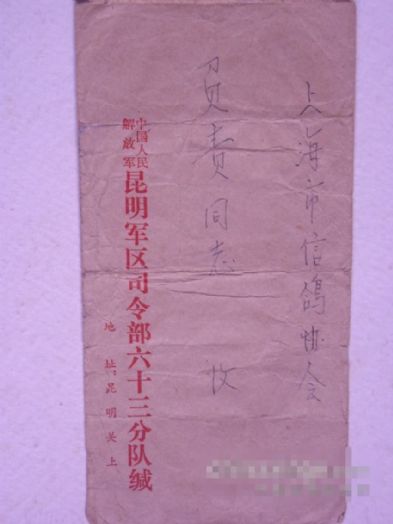 上海市信鸽协会
负责同志 收
中国人民
解放军
昆明军区司令部六十三分队缄
地址:昆明关上